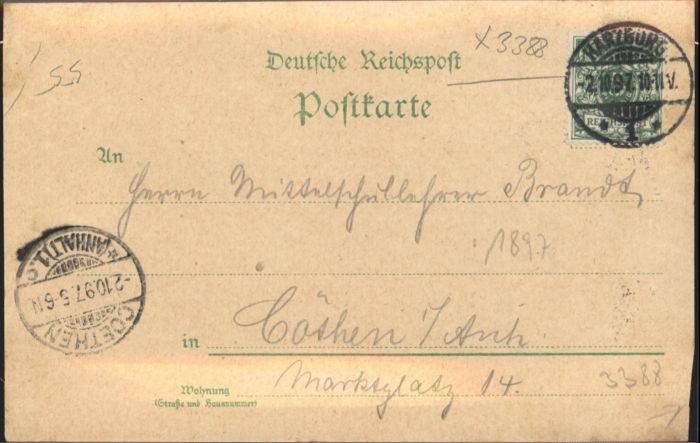 55
x 3388
Deutsche Reichspost
Postkarte
HARZBURG
2.10.97. 10-11 V.
* 1 *
REICHSPOST
An
Herrn Mittelschullehrer Brandt,
1897
COETHEN
* (ANHALT) 1.
-2.10.97. 5-6 N.
in Cöthen i/Anh.
Wohnung
(Straße und Hausnummer)
Marktplatz 14.
3388